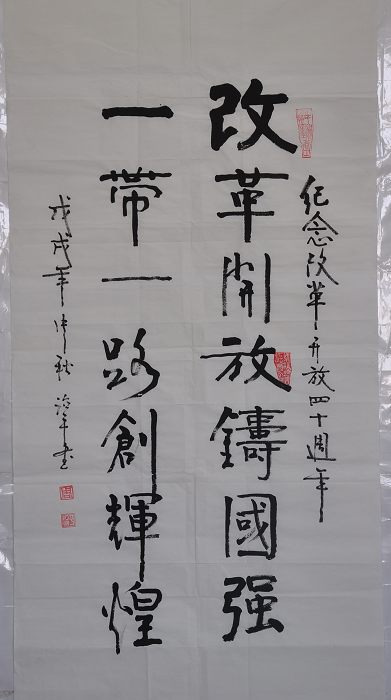 纪念改革开放四十週年
改革開放鑄國强
一帶一路創輝煌
戊戌年中秋治平书